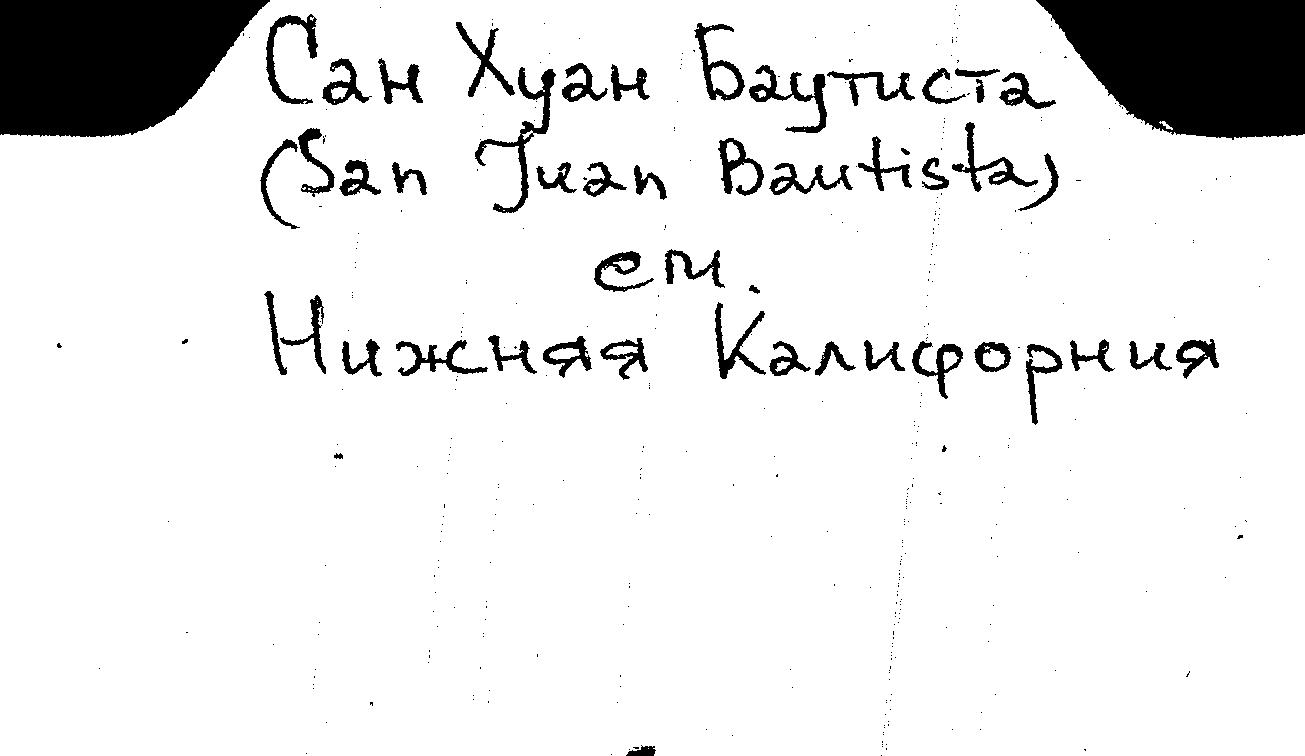 Сан Хуан Баутиста
(San Juan Bautista)
см.
Нижняя Калифорния